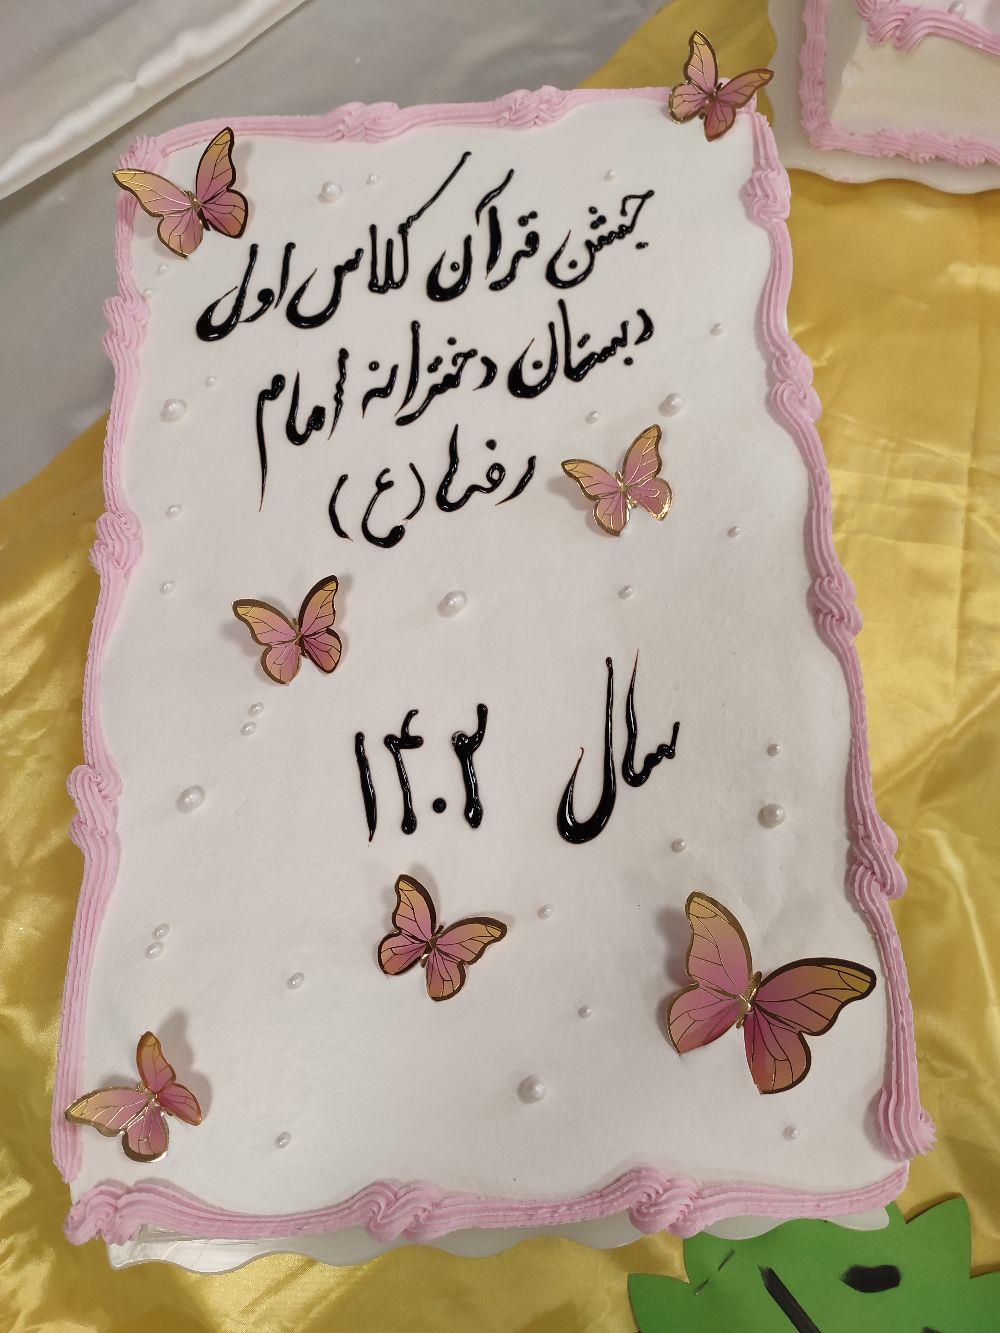 جشن قرآن کلاس اول
دبستان دخترانه امام
رضا (ع)
سال ۱۴۰۲